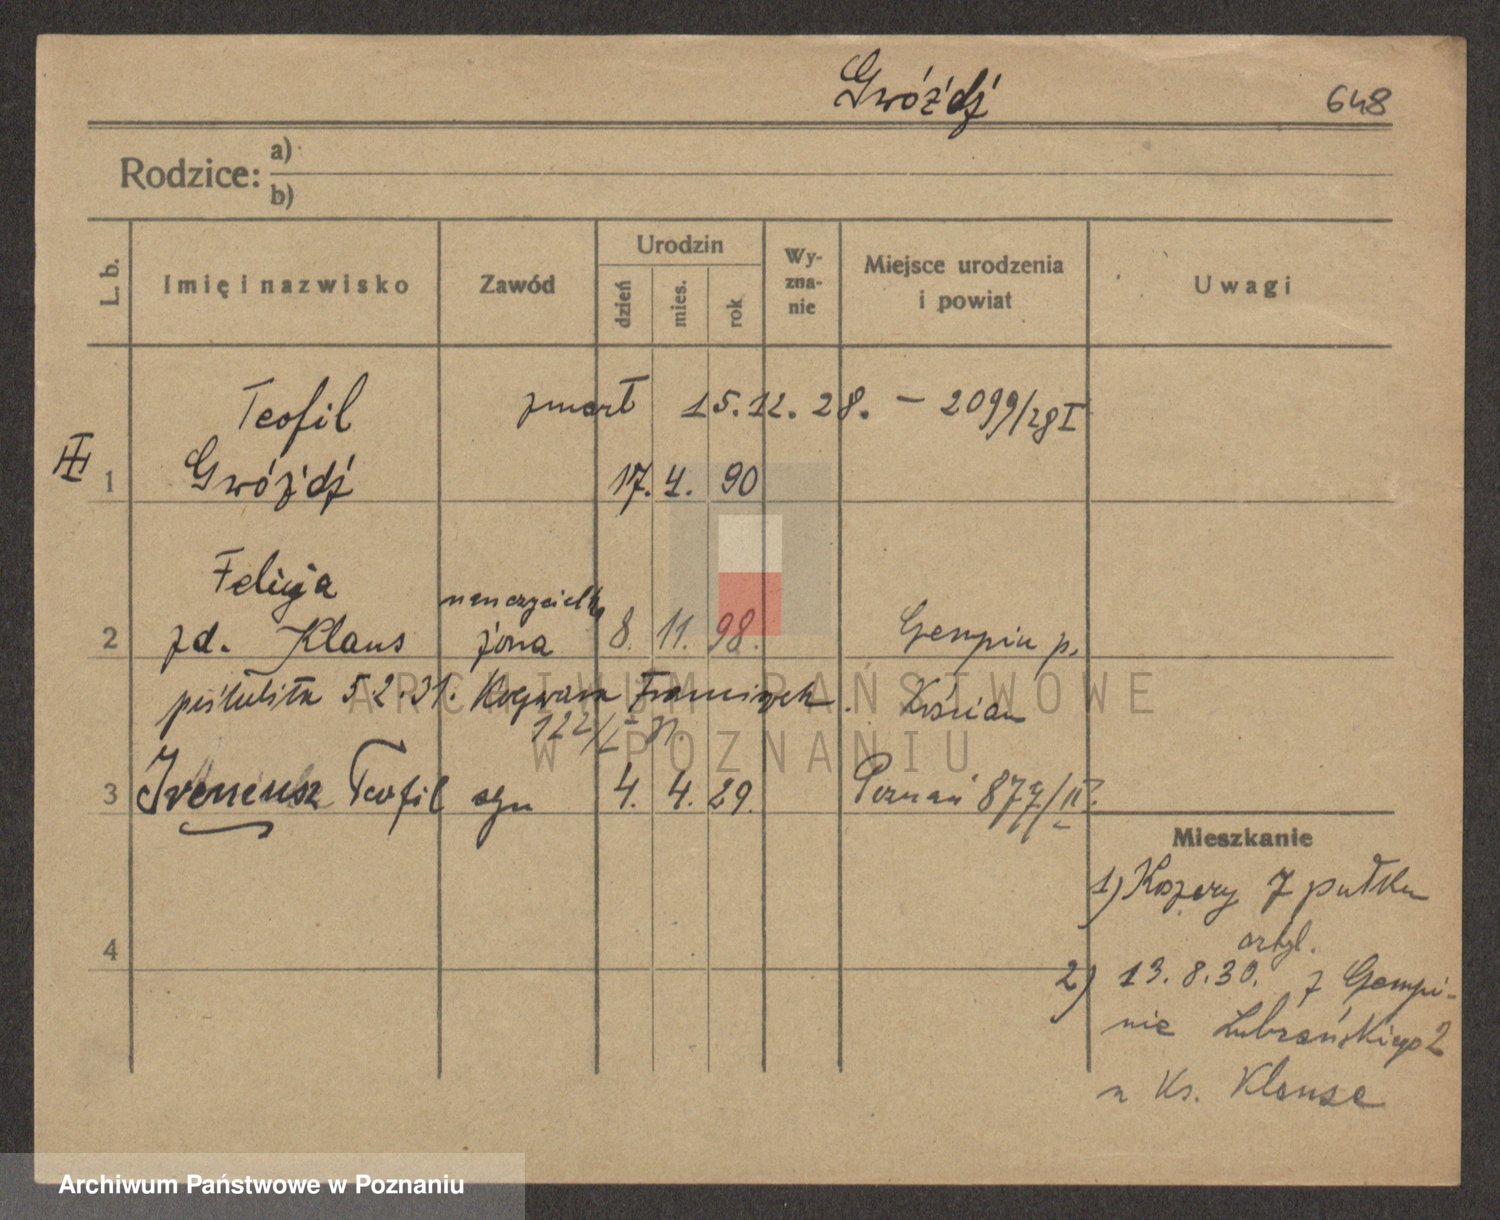 Gwóźdź 648
Rodzice: a)
b)
L. b. Imię i nazwisko Zawód Urodzin dzień mies. rok Wy-zna-nie Miejsce urodzenia i powiat Uwagi
Teofil zmarł 15.12.28. – 2099/28 I
III 1 Gwóźdź 17. 4. 90
Felicja nauczycielka
2 zd. Klaus żona 8. 11. 98. Gempin p.
poślubiła 5.2.31. Franciszek. Kościan
122/I 31.
3 Ireneusz Teofil syn 4. 4. 29. Poznań 877/II.
Mieszkanie
1) Koszary 7 pułku
4 artyl.
2) 13.8.30. z Gempi-
nie Lubrańskiego 2
u Ks. Klausa
ARCHIWUM PAŃSTWOWE
W POZNANIU
Archiwum Państwowe w Poznaniu